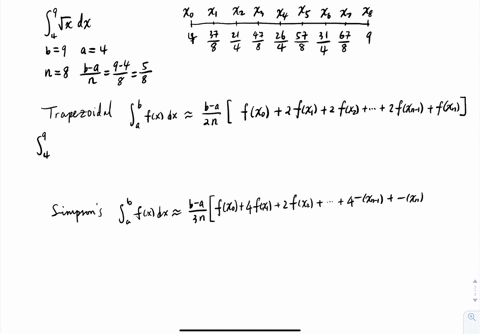 ∫₄⁹ √x dx
b=9 a=4
n=8 (b-a)/n = (9-4)/8 = 5/8
x₀ x₁ x₂ x₃ x₄ x₅ x₆ x₇ x₈
4 37/8 21/4 47/8 26/4 57/8 31/4 67/8 9
Trapezoidal ∫ₐᵇ f(x) dx ≈ (b-a)/2n [ f(x₀) + 2 f(x₁) + 2 f(x₂) + ... + 2 f(xₙ₋₁) + f(xₙ) ]
∫₄⁹
Simpson's ∫ₐᵇ f(x) dx ≈ (b-a)/3n [ f(x₀) + 4 f(x₁) + 2 f(x₂) + ... + 4 -(xₙ₋₁) + -(xₙ)